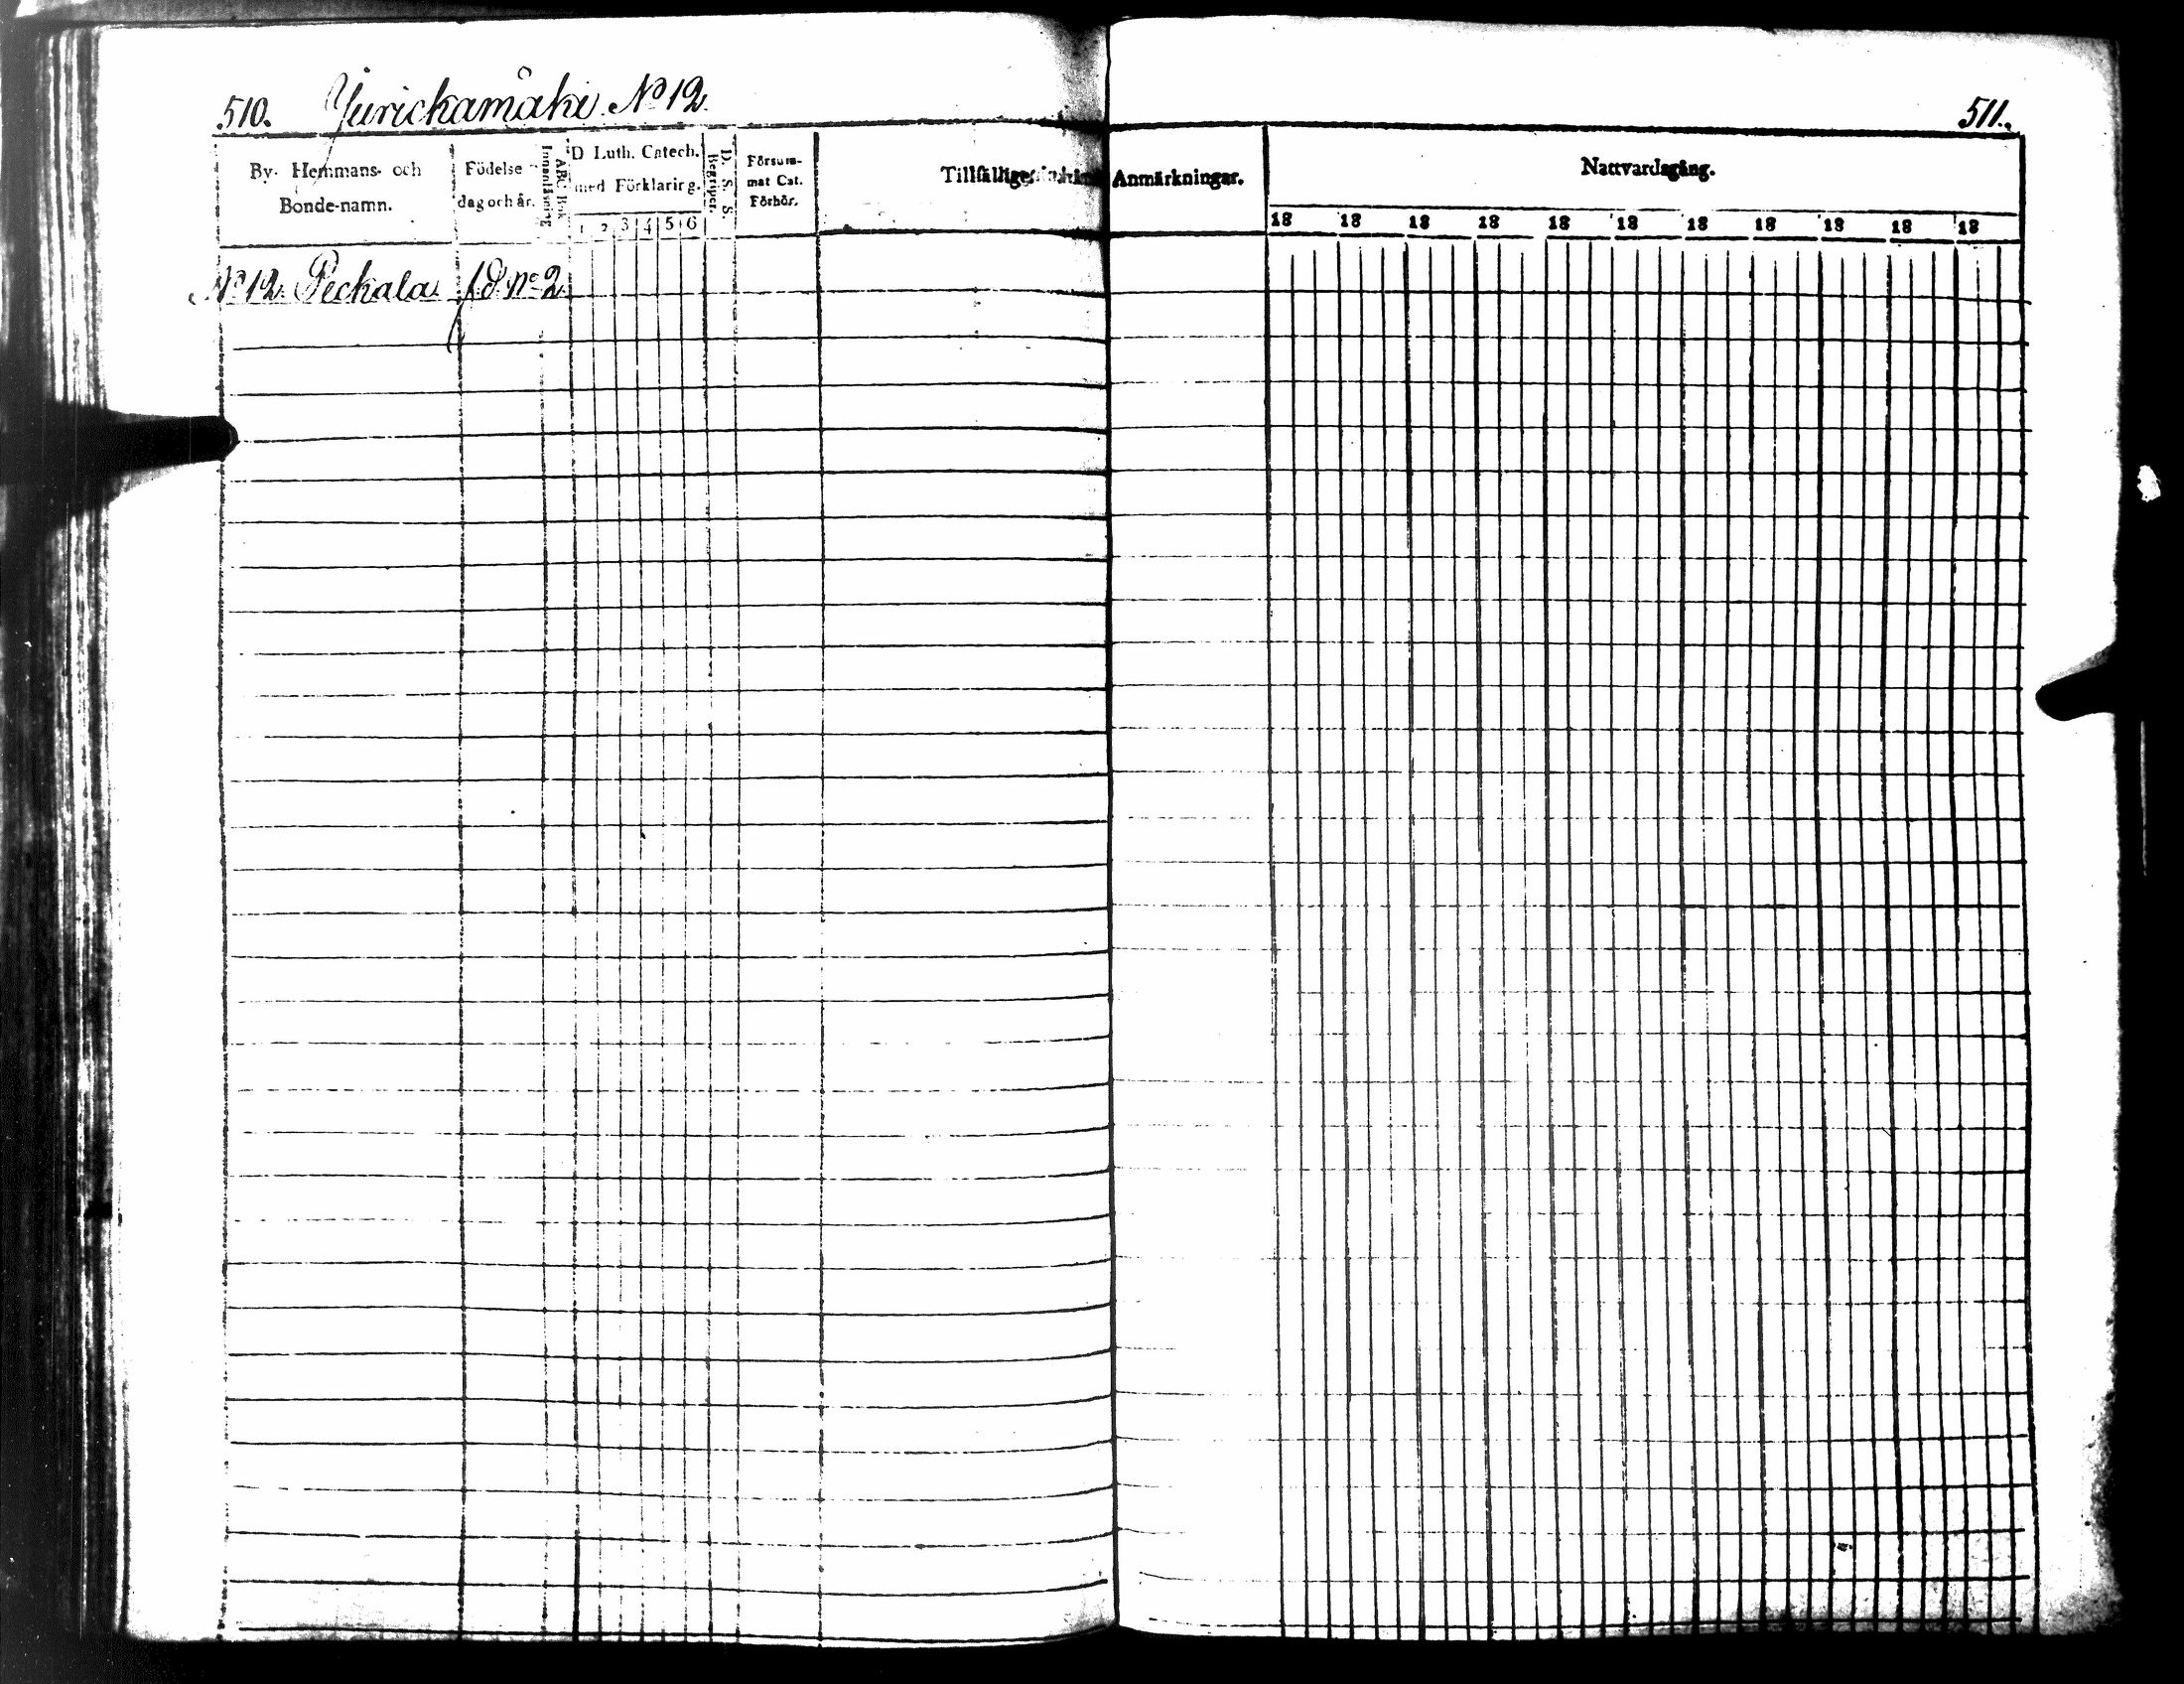 510. Jurickamäki No 12.
511.
By- Hemmans- och Bonde-namn.
Födelse dag och år.
Innanläsning ABC Bok
D Luth. Catech. med Förklaring.
1 2 3 4 5 6
Begripet.
D. S. S.
Försummat Cat. Förhör.
Tillfällige Anmärkningar.
Nattvardsgång.
18 18 18 18 18 18 18 18 18 18 18
No 12. Peckala fd no 2